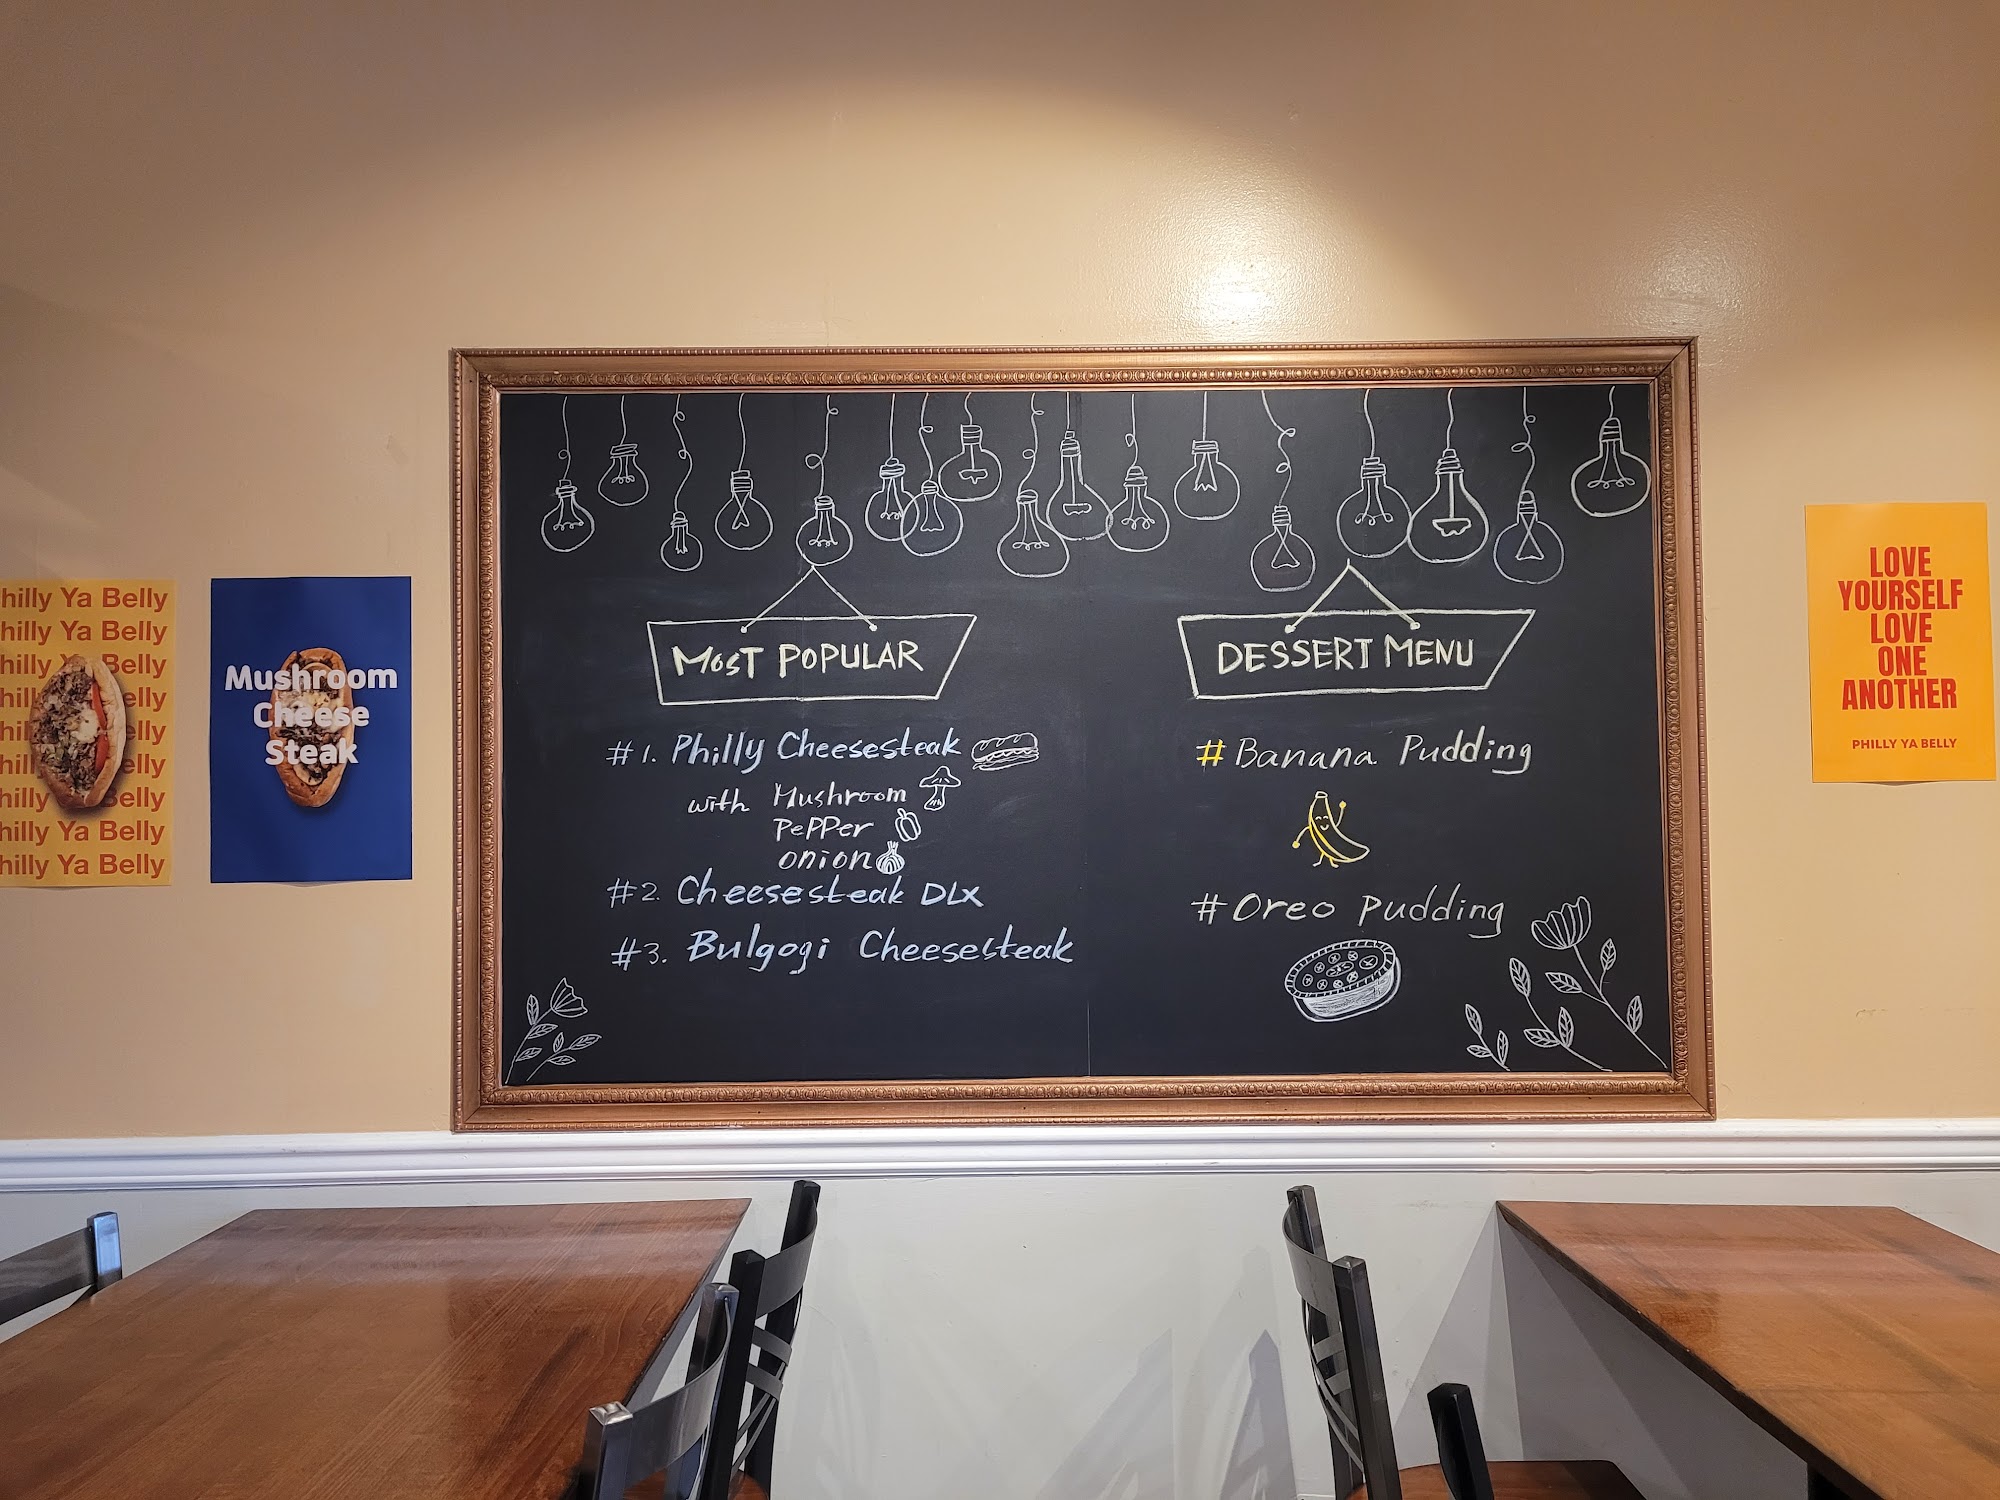 hilly Ya Belly
hilly Ya Belly
hilly Ya Belly
hil elly
hil elly
hill elly
hilly Belly
hilly Ya Belly
hilly Ya Belly
Mushroom
Cheese
Steak
MOST POPULAR
#1. Philly Cheesesteak
with Mushroom
PePPer
onion
#2. Cheesesteak DLX
#3. Bulgogi Cheesesteak
DESSERT MENU
# Banana Pudding
# Oreo pudding
LOVE
YOURSELF
LOVE
ONE
ANOTHER
PHILLY YA BELLY